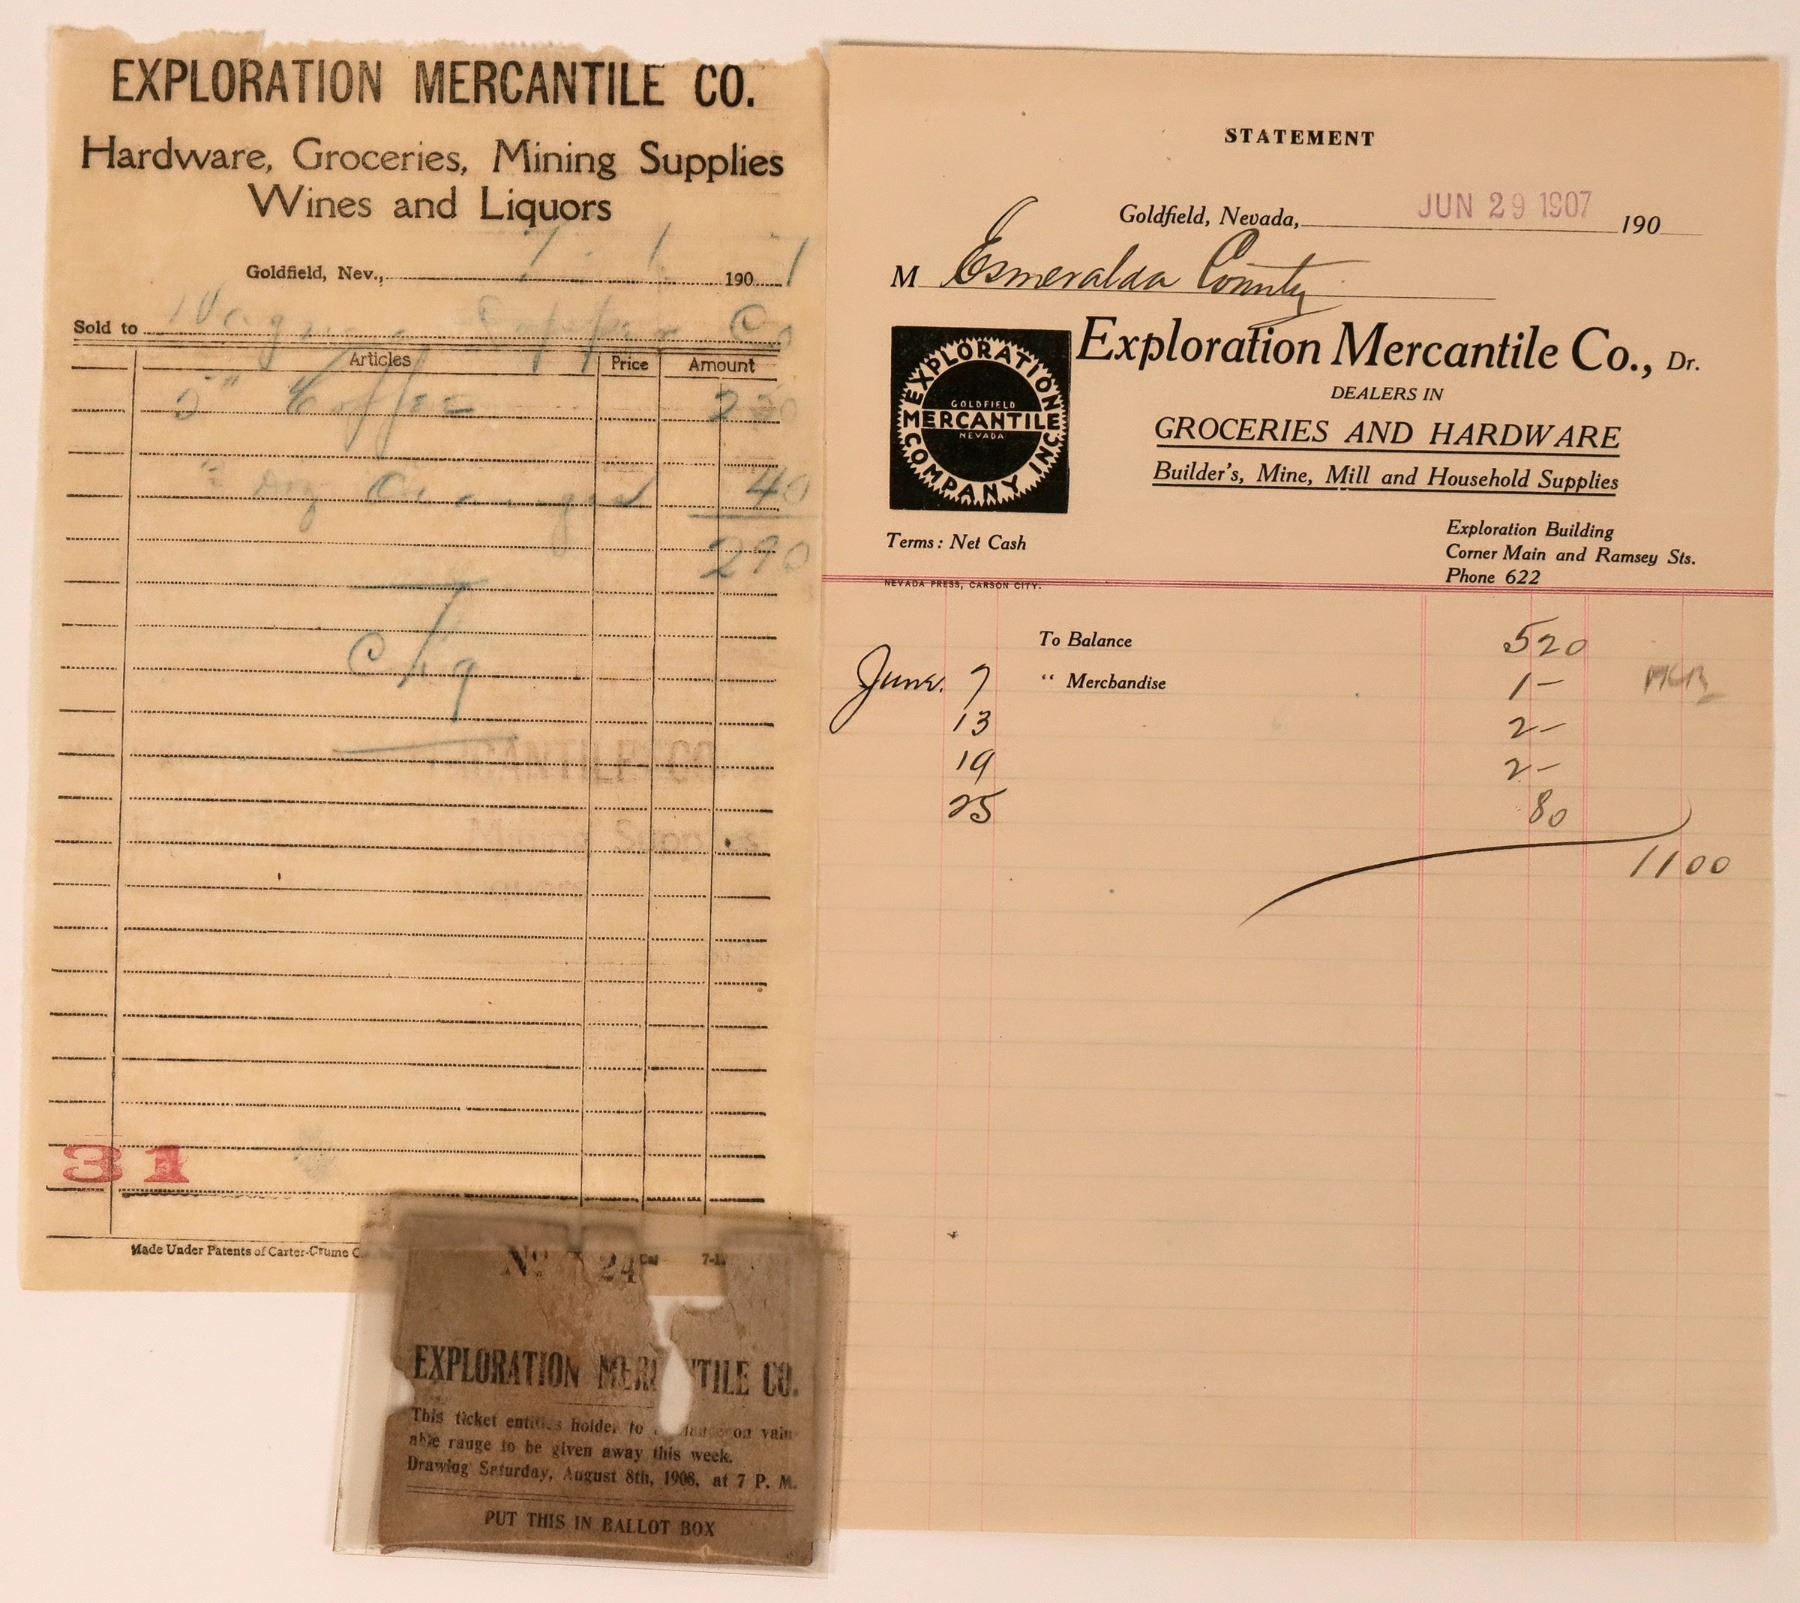 EXPLORATION MERCANTILE CO.
Hardware, Groceries, Mining Supplies
Wines and Liquors
Goldfield, Nev., 7 - 1 190 1
Sold to Co
Articles Price Amount
5" Coffee 2 50
Doz Oranges 40
2 90
Chg
31
Made Under Patents of Carter-Crume
No 24
EXPLORATION MERCANTILE CO.
This ticket entitles holder to on valu-
able range to be given away this week.
Drawing Saturday, August 8th, 1908, at 7 P. M.
PUT THIS IN BALLOT BOX
STATEMENT
Goldfield, Nevada, JUN 29 1907 190
M Esmeralda County
EXPLORATION MERCANTILE COMPANY INC
GOLDFIELD
NEVADA
Exploration Mercantile Co., Dr.
DEALERS IN
GROCERIES AND HARDWARE
Builder's, Mine, Mill and Household Supplies
Terms: Net Cash
Exploration Building
Corner Main and Ramsey Sts.
Phone 622
NEVADA PRESS, CARSON CITY.
To Balance 5 20
June 7 " Merchandise 1 -
13 2 -
19 2 -
25 80
11 00